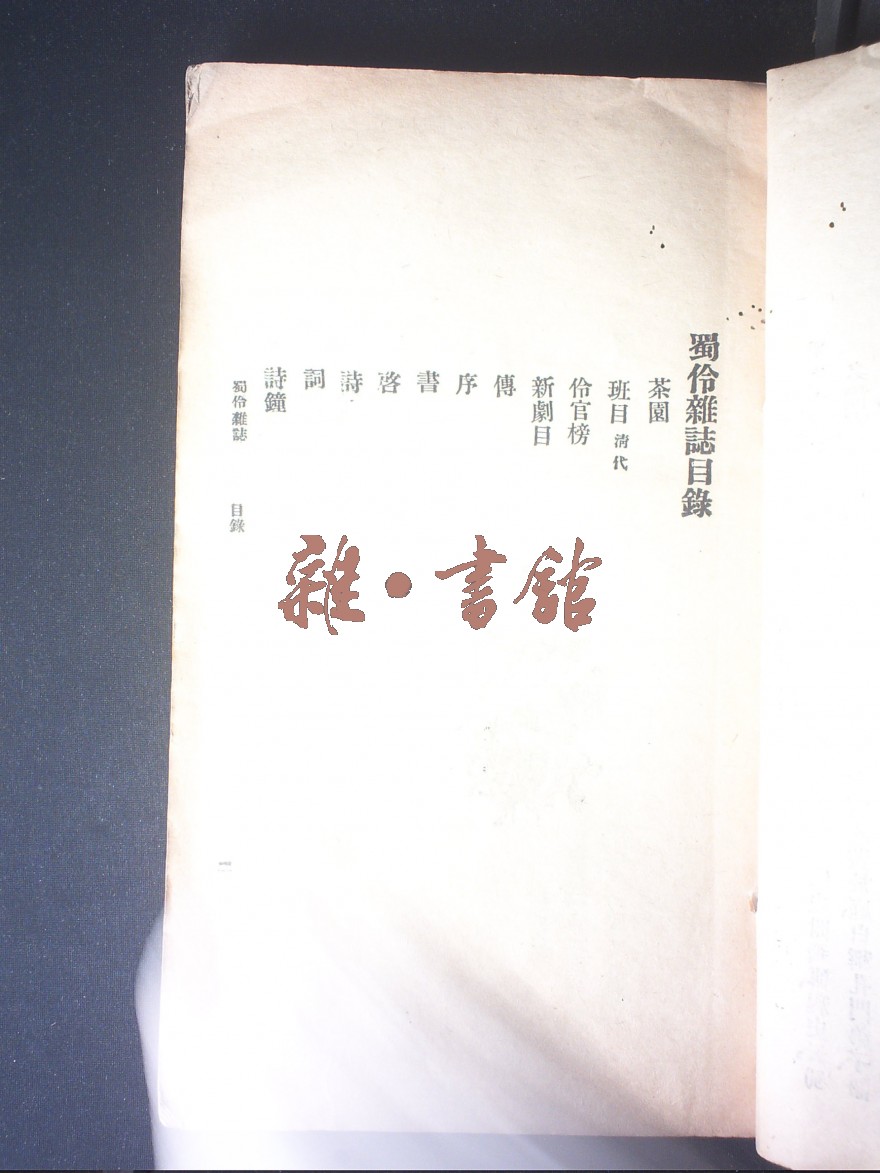 蜀伶雜誌目錄
茶園
班目 清代
伶官榜
新劇目
傳
序
書
啓
詩
詞
詩鐘
蜀伶雜誌 目錄
雜・書館